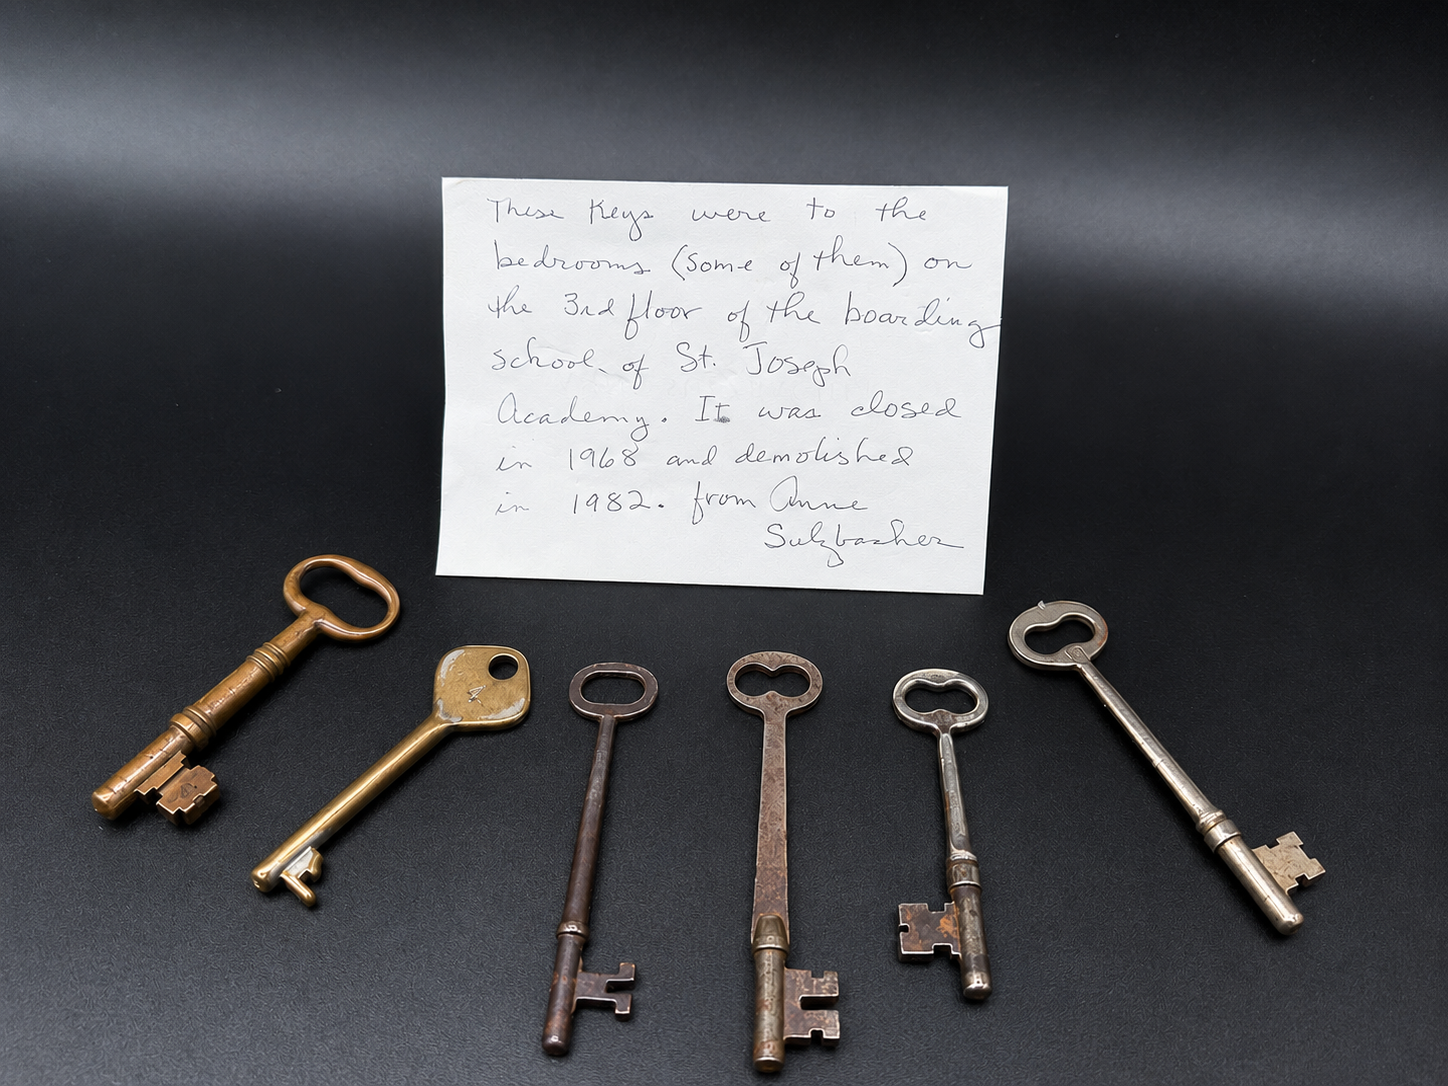 These Keys were to the
bedrooms (some of them) on
the 3rd floor of the boarding
school of St. Joseph
Academy. It was closed
in 1968 and demolished
in 1982. from Anne
Sulzbacher